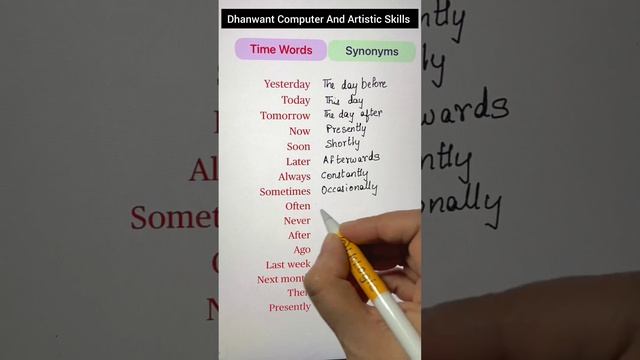 Dhanwant Computer And Artistic Skills
Time Words Synonyms
Yesterday The day before
Today This day
Tomorrow The day after
Now Presently
Soon Shortly
Later Afterwards
Always Constantly
Sometimes Occasionally
Often
Never
After
Ago
Last week
Next month
Then
Presently